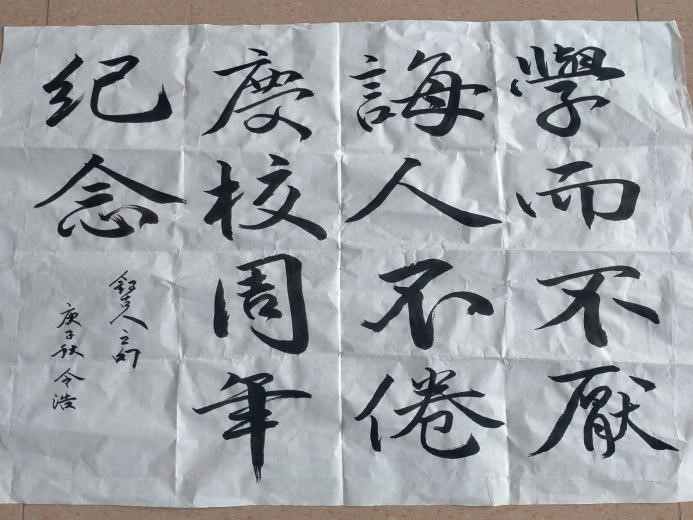 學而不厭
誨人不倦
慶校周年
纪念
録古人之句
庚子秋令浩